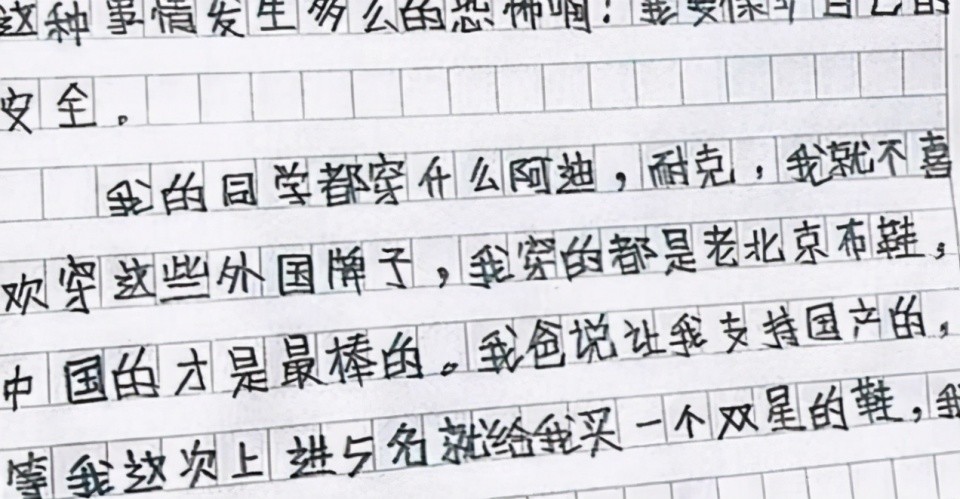 这种事情发生多么的恐怖啊!我要保护自己的
安全。
我的同学都穿什么阿迪,耐克,我就不喜
欢穿这些外国牌子,我穿的都是老北京布鞋,
中国的才是最棒的。我爸说让我支持国产的,
等我这次上进5名就给我买一个双星的鞋,我